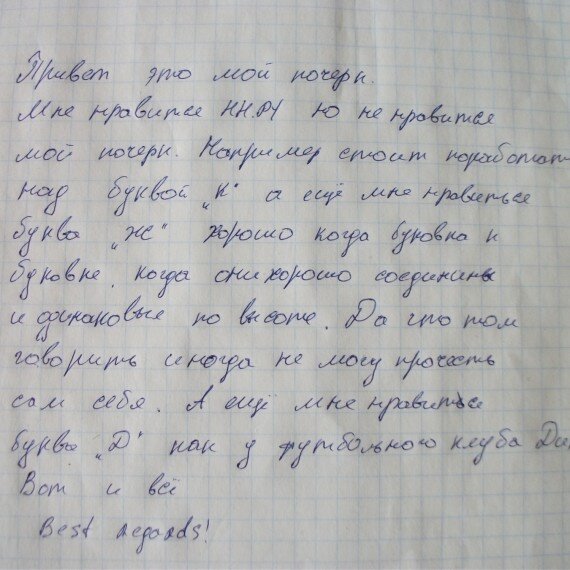 Привет это мой почерк.
Мне нравится но не нравится
мой почерк. Например стоит поработат
над буквой „К" а ещё мне нравиться
буква „Ж" хорошо когда буковка к
буковке, когда они хорошо соединины
и одинаковые по высоте. Да что там
говорить иногда не могу прочесть
сам себя. А ещё мне нравиться
буква „D" как у футбольного клуба Ди
Вот и всё
Best regards!